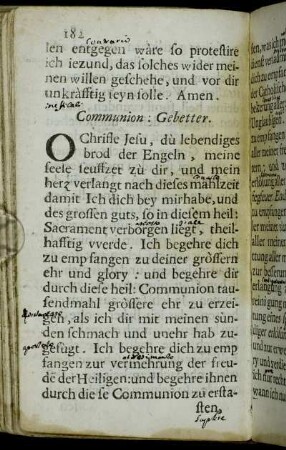 182
len entgegen wäre so protestire
ich iezund, das solches wider mei-
nen willen geschehe, und vor dir
unkräfftig seyn solle. Amen.
Communion: Gebetter.
O Christe Jesu, dù lebendiges
brod der Engeln, meine
seele seuffzet zu dir, und mein
hertz verlangt nach dieses mahlzeit
damit Ich dich bey mir habe, und
des grossen guts, so in diesem heil:
Sacrament verborgen liegt, theil-
hafftig vverde. Ich begehre dich
zu empfangen zu deiner grössern
ehr und glory: und begehre dir
durch diese heil: Communion tau-
sendmahl grössere ehr zu erzei-
gen, als ich dir mit meinen sün-
den schmach und unehr hab zu-
gefügt. Ich begehre dich zu emp
fangen zur vermehrung der freu-
de der Heiligen: und begehre ihnen
durch die se Communion zu ersta-
sten